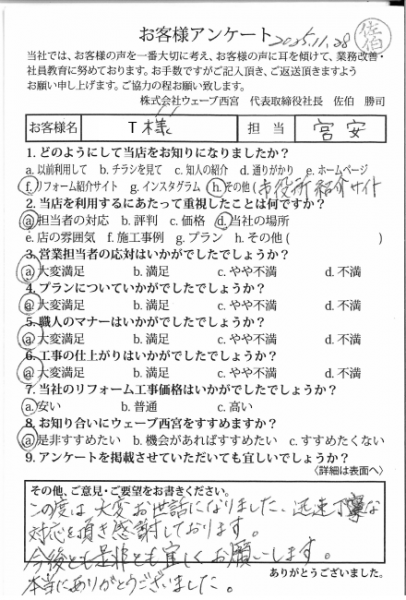 お客様アンケート 2025.11.28 佐伯
当社では、お客様の声を一番大切に考え、お客様の声に耳を傾けて、業務改善・
社員教育に努めております。お手数ですがご記入頂き、ご返送頂きますよう
お願い申し上げます。ご協力の程お願い致します。
株式会社ウェーブ西宮 代表取締役社長 佐伯 勝司
お客様名 T様 担当 宮安
1. どのようにして当店をお知りになりましたか?
a. 以前利用して b. チラシを見て c. 知人の紹介 d. 通りがかり e. ホームページ
f. リフォーム紹介サイト g. インスタグラム h. その他 (市役所紹介サイト
2. 当店を利用するにあたって重視したことは何ですか?
a. 担当者の対応 b. 評判 c. 価格 d. 当社の場所
e. 店の雰囲気 f. 施工事例 g. プラン h. その他 ( )
3. 営業担当者の応対はいかがでしたでしょうか?
a. 大変満足 b. 満足 c. やや不満 d. 不満
4. プランについていかがでしたでしょうか?
a. 大変満足 b. 満足 c. やや不満 d. 不満
5. 職人のマナーはいかがでしたでしょうか?
a. 大変満足 b. 満足 c. やや不満 d. 不満
6. 工事の仕上がりはいかがでしたでしょうか?
a. 大変満足 b. 満足 c. やや不満 d. 不満
7. 当社のリフォーム工事価格はいかがでしたでしょうか?
a. 安い b. 普通 c. 高い
8. お知り合いにウェーブ西宮をすすめますか?
a. 是非すすめたい b. 機会があればすすめたい c. すすめたくない
9. アンケートを掲載させていただいても宜しいでしょうか?
〈詳細は表面へ〉
その他、ご意見・ご要望をお書きください。
この度は大変お世話になりました、迅速丁寧な
対応を頂き感謝しております。
今後とも是非とも宜しくお願いします。
本当にありがとうございました。
ありがとうございました。